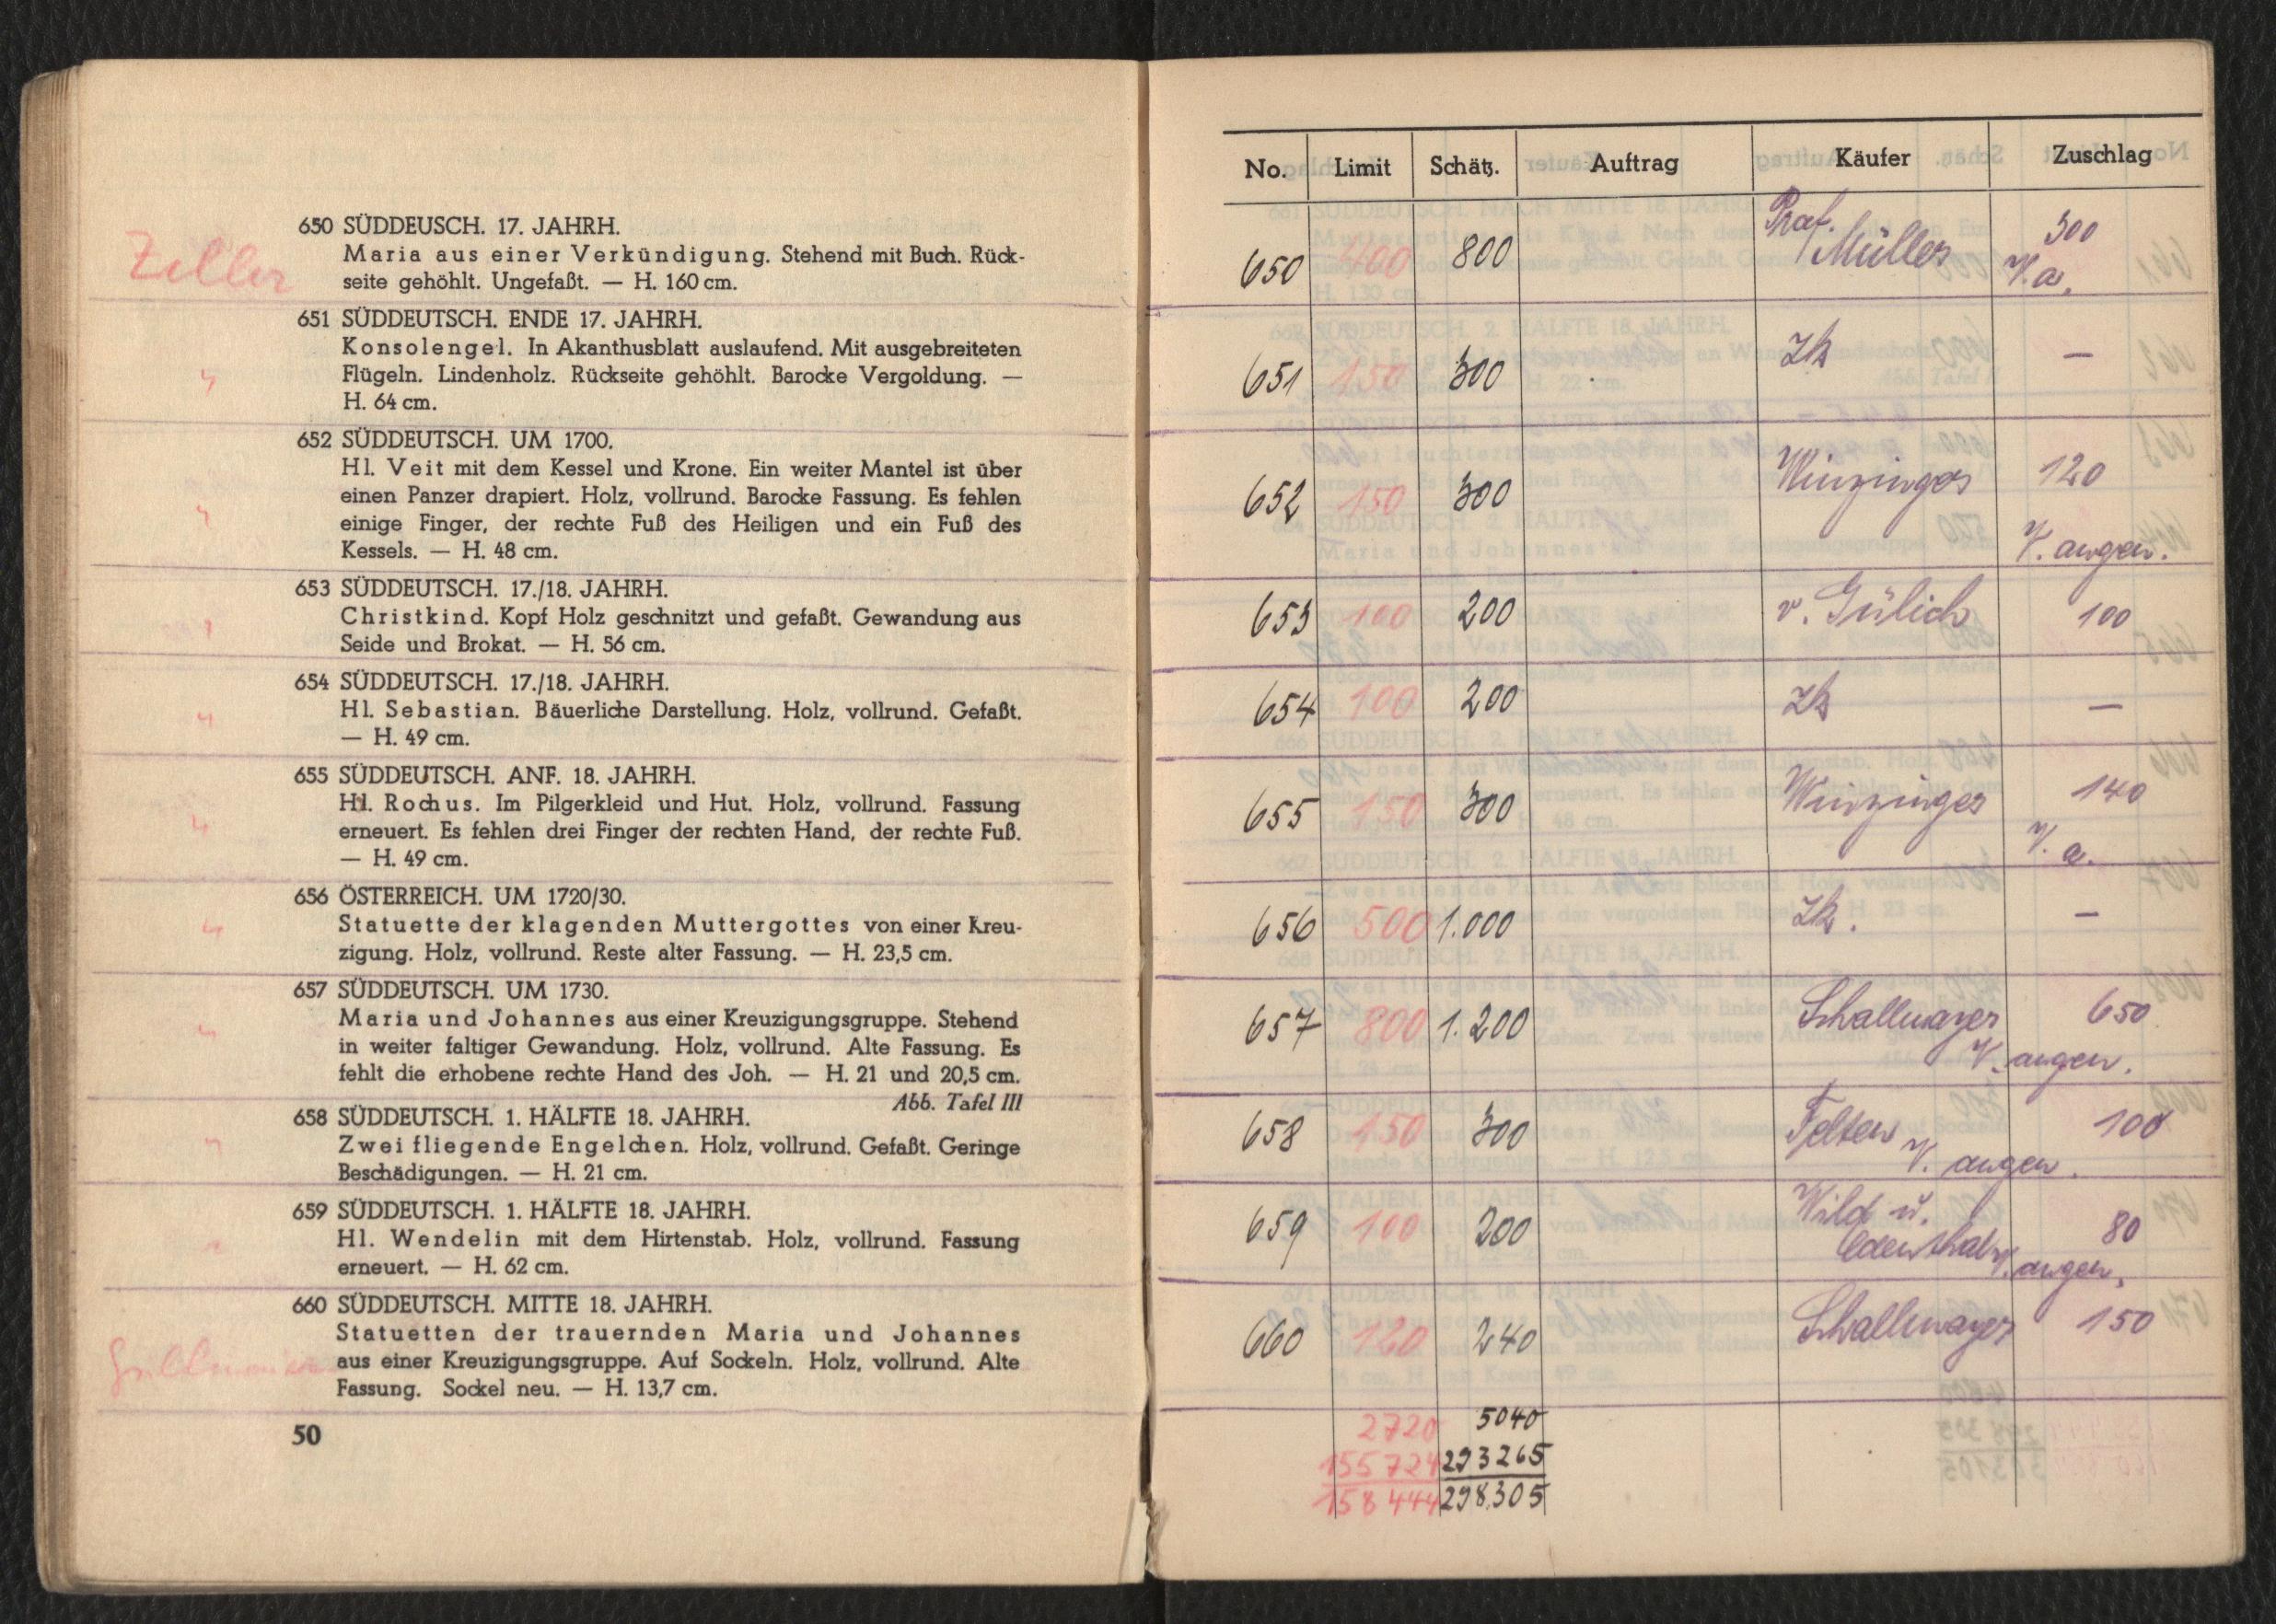 650 SÜDDEUSCH. 17. JAHRH.
Zeller
Maria aus einer Verkündigung. Stehend mit Buch. Rück-
seite gehöhlt. Ungefaßt. — H. 160 cm.
651 SÜDDEUTSCH. ENDE 17. JAHRH.
Konsolengel. In Akanthusblatt auslaufend. Mit ausgebreiteten
Flügeln. Lindenholz. Rückseite gehöhlt. Barocke Vergoldung. —
H. 64 cm.
652 SÜDDEUTSCH. UM 1700.
Hl. Veit mit dem Kessel und Krone. Ein weiter Mantel ist über
einen Panzer drapiert. Holz, vollrund. Barocke Fassung. Es fehlen
einige Finger, der rechte Fuß des Heiligen und ein Fuß des
Kessels. — H. 48 cm.
653 SÜDDEUTSCH. 17./18. JAHRH.
Christkind. Kopf Holz geschnitzt und gefaßt. Gewandung aus
Seide und Brokat. — H. 56 cm.
654 SÜDDEUTSCH. 17./18. JAHRH.
Hl. Sebastian. Bäuerliche Darstellung. Holz, vollrund. Gefaßt.
— H. 49 cm.
655 SÜDDEUTSCH. ANF. 18. JAHRH.
Hl. Rochus. Im Pilgerkleid und Hut. Holz, vollrund. Fassung
erneuert. Es fehlen drei Finger der rechten Hand, der rechte Fuß.
— H. 49 cm.
656 ÖSTERREICH. UM 1720/30.
Statuette der klagenden Muttergottes von einer Kreu-
zigung. Holz, vollrund. Reste alter Fassung. — H. 23,5 cm.
657 SÜDDEUTSCH. UM 1730.
Maria und Johannes aus einer Kreuzigungsgruppe. Stehend
in weiter faltiger Gewandung. Holz, vollrund. Alte Fassung. Es
fehlt die erhobene rechte Hand des Joh. — H. 21 und 20,5 cm.
Abb. Tafel III
658 SÜDDEUTSCH. 1. HÄLFTE 18. JAHRH.
Zwei fliegende Engelchen. Holz, vollrund. Gefaßt. Geringe
Beschädigungen. — H. 21 cm.
659 SÜDDEUTSCH. 1. HÄLFTE 18. JAHRH.
Hl. Wendelin mit dem Hirtenstab. Holz, vollrund. Fassung
erneuert. — H. 62 cm.
660 SÜDDEUTSCH. MITTE 18. JAHRH.
Statuetten der trauernden Maria und Johannes
aus einer Kreuzigungsgruppe. Auf Sockeln. Holz, vollrund. Alte
Fassung. Sockel neu. — H. 13,7 cm.
50
No. Limit Schätz. Auftrag Käufer Zuschlag
Prof.
650 400 800 Müller 300
V. a.
651 150 300 Zk —
652 150 300 Winzinger 120
V. angen.
653 100 200 v. Gülich 100
654 100 200 Zk —
655 150 300 Winzinger 140
V. a.
656 500 1.000 Zk. —
657 800 1.200 Schallmayer 650
V. angen.
658 150 300 Felten 100
V. angen.
659 100 200 Wild u. 80
V. angen.
660 120 240 Schallmayer 150
2720 5040
155 724 293265
158 444 298.305